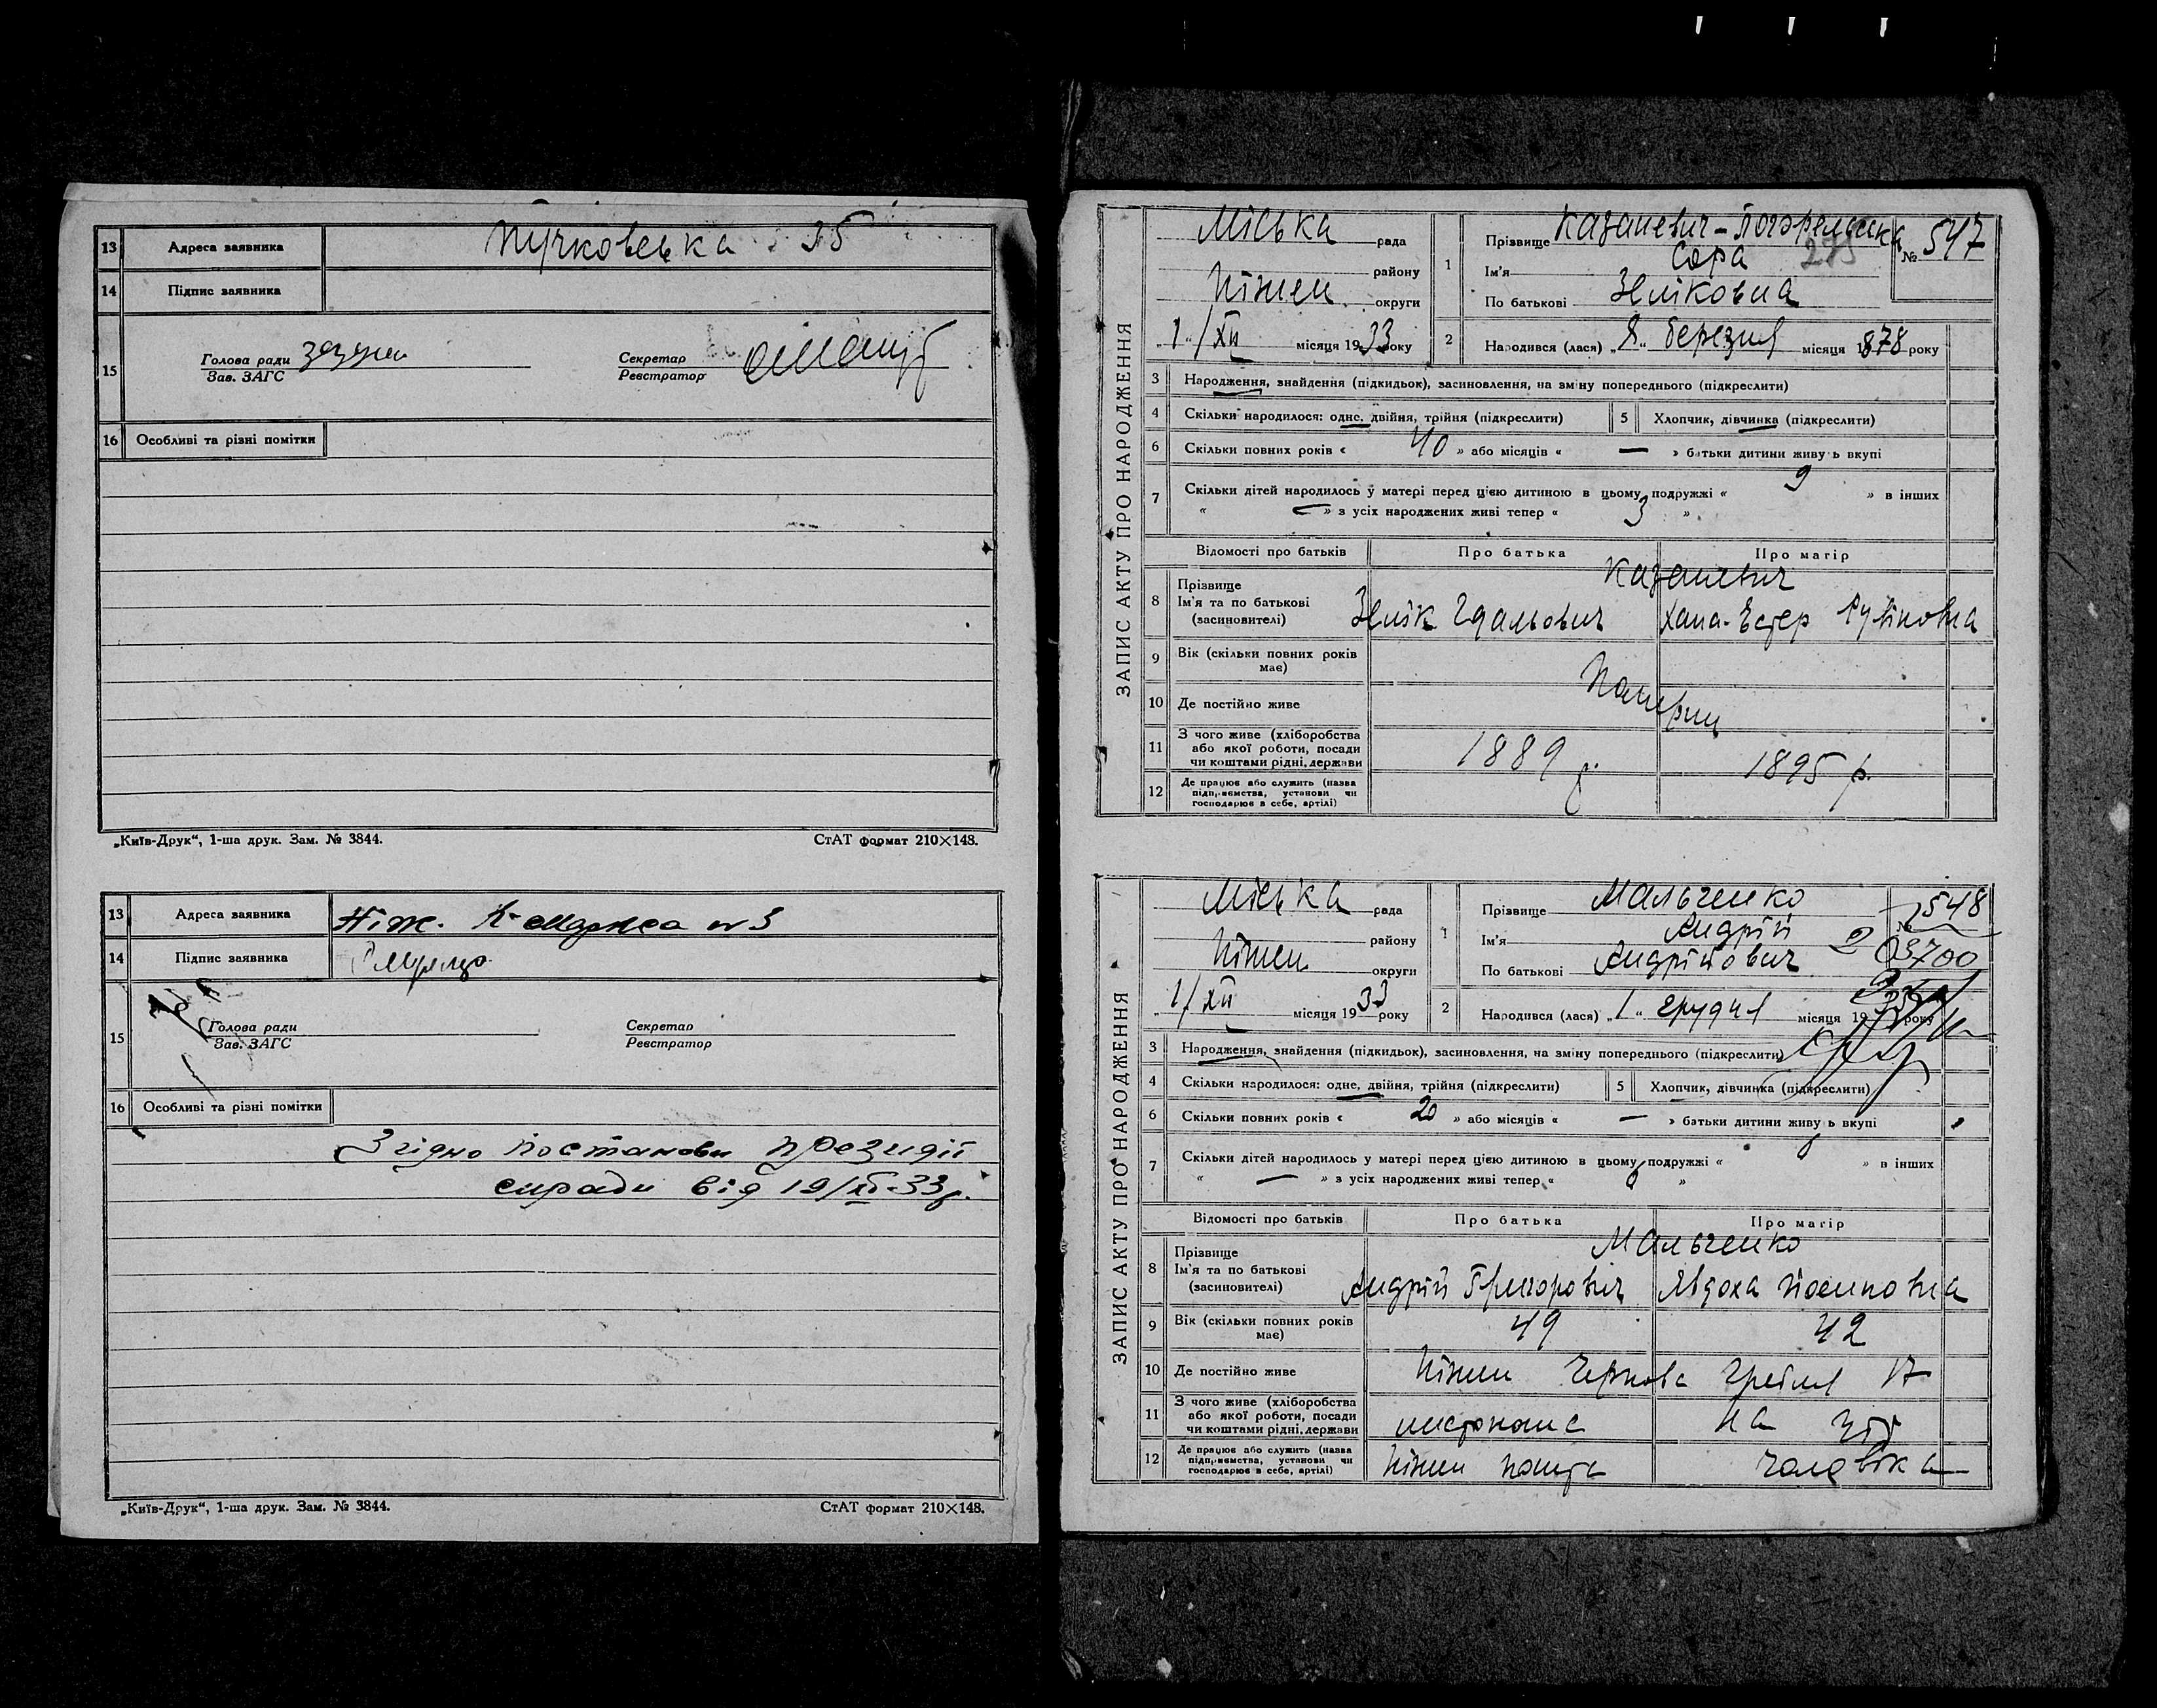 13 Адреса заявника Пучковська 35
14 Підпис заявника
15 Голова ради
Зав. ЗАГС
Секретар
Реєстратор
16 Особливі та різні помітки
„Київ-Друк“, 1-ша друк. Зам. № 3844. СтАТ формат 210×148.
13 Адреса заявника Ніж. К-Маркса № 3
14 Підпис заявника
15 Голова ради
Зав. ЗАГС
Секретар
Реєстратор
16 Особливі та різні помітки
Згідно постанови президії
від 19/XI-33р.
„Київ-Друк“, 1-ша друк. Зам. № 3844. СтАТ формат 210×148.
ЗАПИС АКТУ ПРО НАРОДЖЕННЯ
Міська рада
району
Ніжен округи
„1“/XII місяця 1933 року
1 Прізвище Казаневич-Погорельська № 547
Ім'я Сора 275
По батькові Зеліковна
2 Народився (лася) „8“ березня місяця 1878 року
3 Народження, знайдення (підкидьок), засиновлення, на зміну попереднього (підкреслити)
4 Скільки народилося: одне, двійня, трійня (підкреслити) 5 Хлопчик, дівчинка (підкреслити)
6 Скільки повних років « 40 » або місяців « — » батьки дитини живуть вкупі
7 Скільки дітей народилось у матері перед цією дитиною в цьому подружжі « 9 » в інших
« — » з усіх народжених живі тепер « 3 »
Відомості про батьків Про батька Про матір
8 Прізвище Казаневич
Ім'я та по батькові Зелік Гдальович Хана-Естер Рувіновна
(засиновителі)
9 Вік (скільки повних років
має)
10 Де постійно живе
Померли
11 З чого живе (хліборобства
або якої роботи, посади 1889 р. 1895 р.
чи коштами рідні, держави
12 Де працює або служить (назва
підприємства, установи чи
господарює в себе, артілі)
ЗАПИС АКТУ ПРО НАРОДЖЕННЯ
Міська рада
району
Ніжен округи
„1/XII місяця 1933 року
1 Прізвище Мальченко № 548
Ім'я Андрій
По батькові Андрійович 03700
2 Народився (лася) „1“ грудня місяця 1933 року
3 Народження, знайдення (підкидьок), засиновлення, на зміну попереднього (підкреслити)
4 Скільки народилося: одне, двійня, трійня (підкреслити) 5 Хлопчик, дівчинка (підкреслити)
6 Скільки повних років « 20 » або місяців « — » батьки дитини живуть вкупі
7 Скільки дітей народилось у матері перед цією дитиною в цьому подружжі « » в інших
« — » з усіх народжених живі тепер « 6 »
Відомості про батьків Про батька Про матір
8 Прізвище Мальченко
Ім'я та по батькові Андрій Григорович Явдоха
(засиновителі)
9 Вік (скільки повних років 49 42
має)
10 Де постійно живе Ніжен гребля 17
11 З чого живе (хліборобства
або якої роботи, посади листоноша на утр
чи коштами рідні, держави
12 Де працює або служить (назва
підприємства, установи чи Ніжен пошта чоловіка
господарює в себе, артілі)